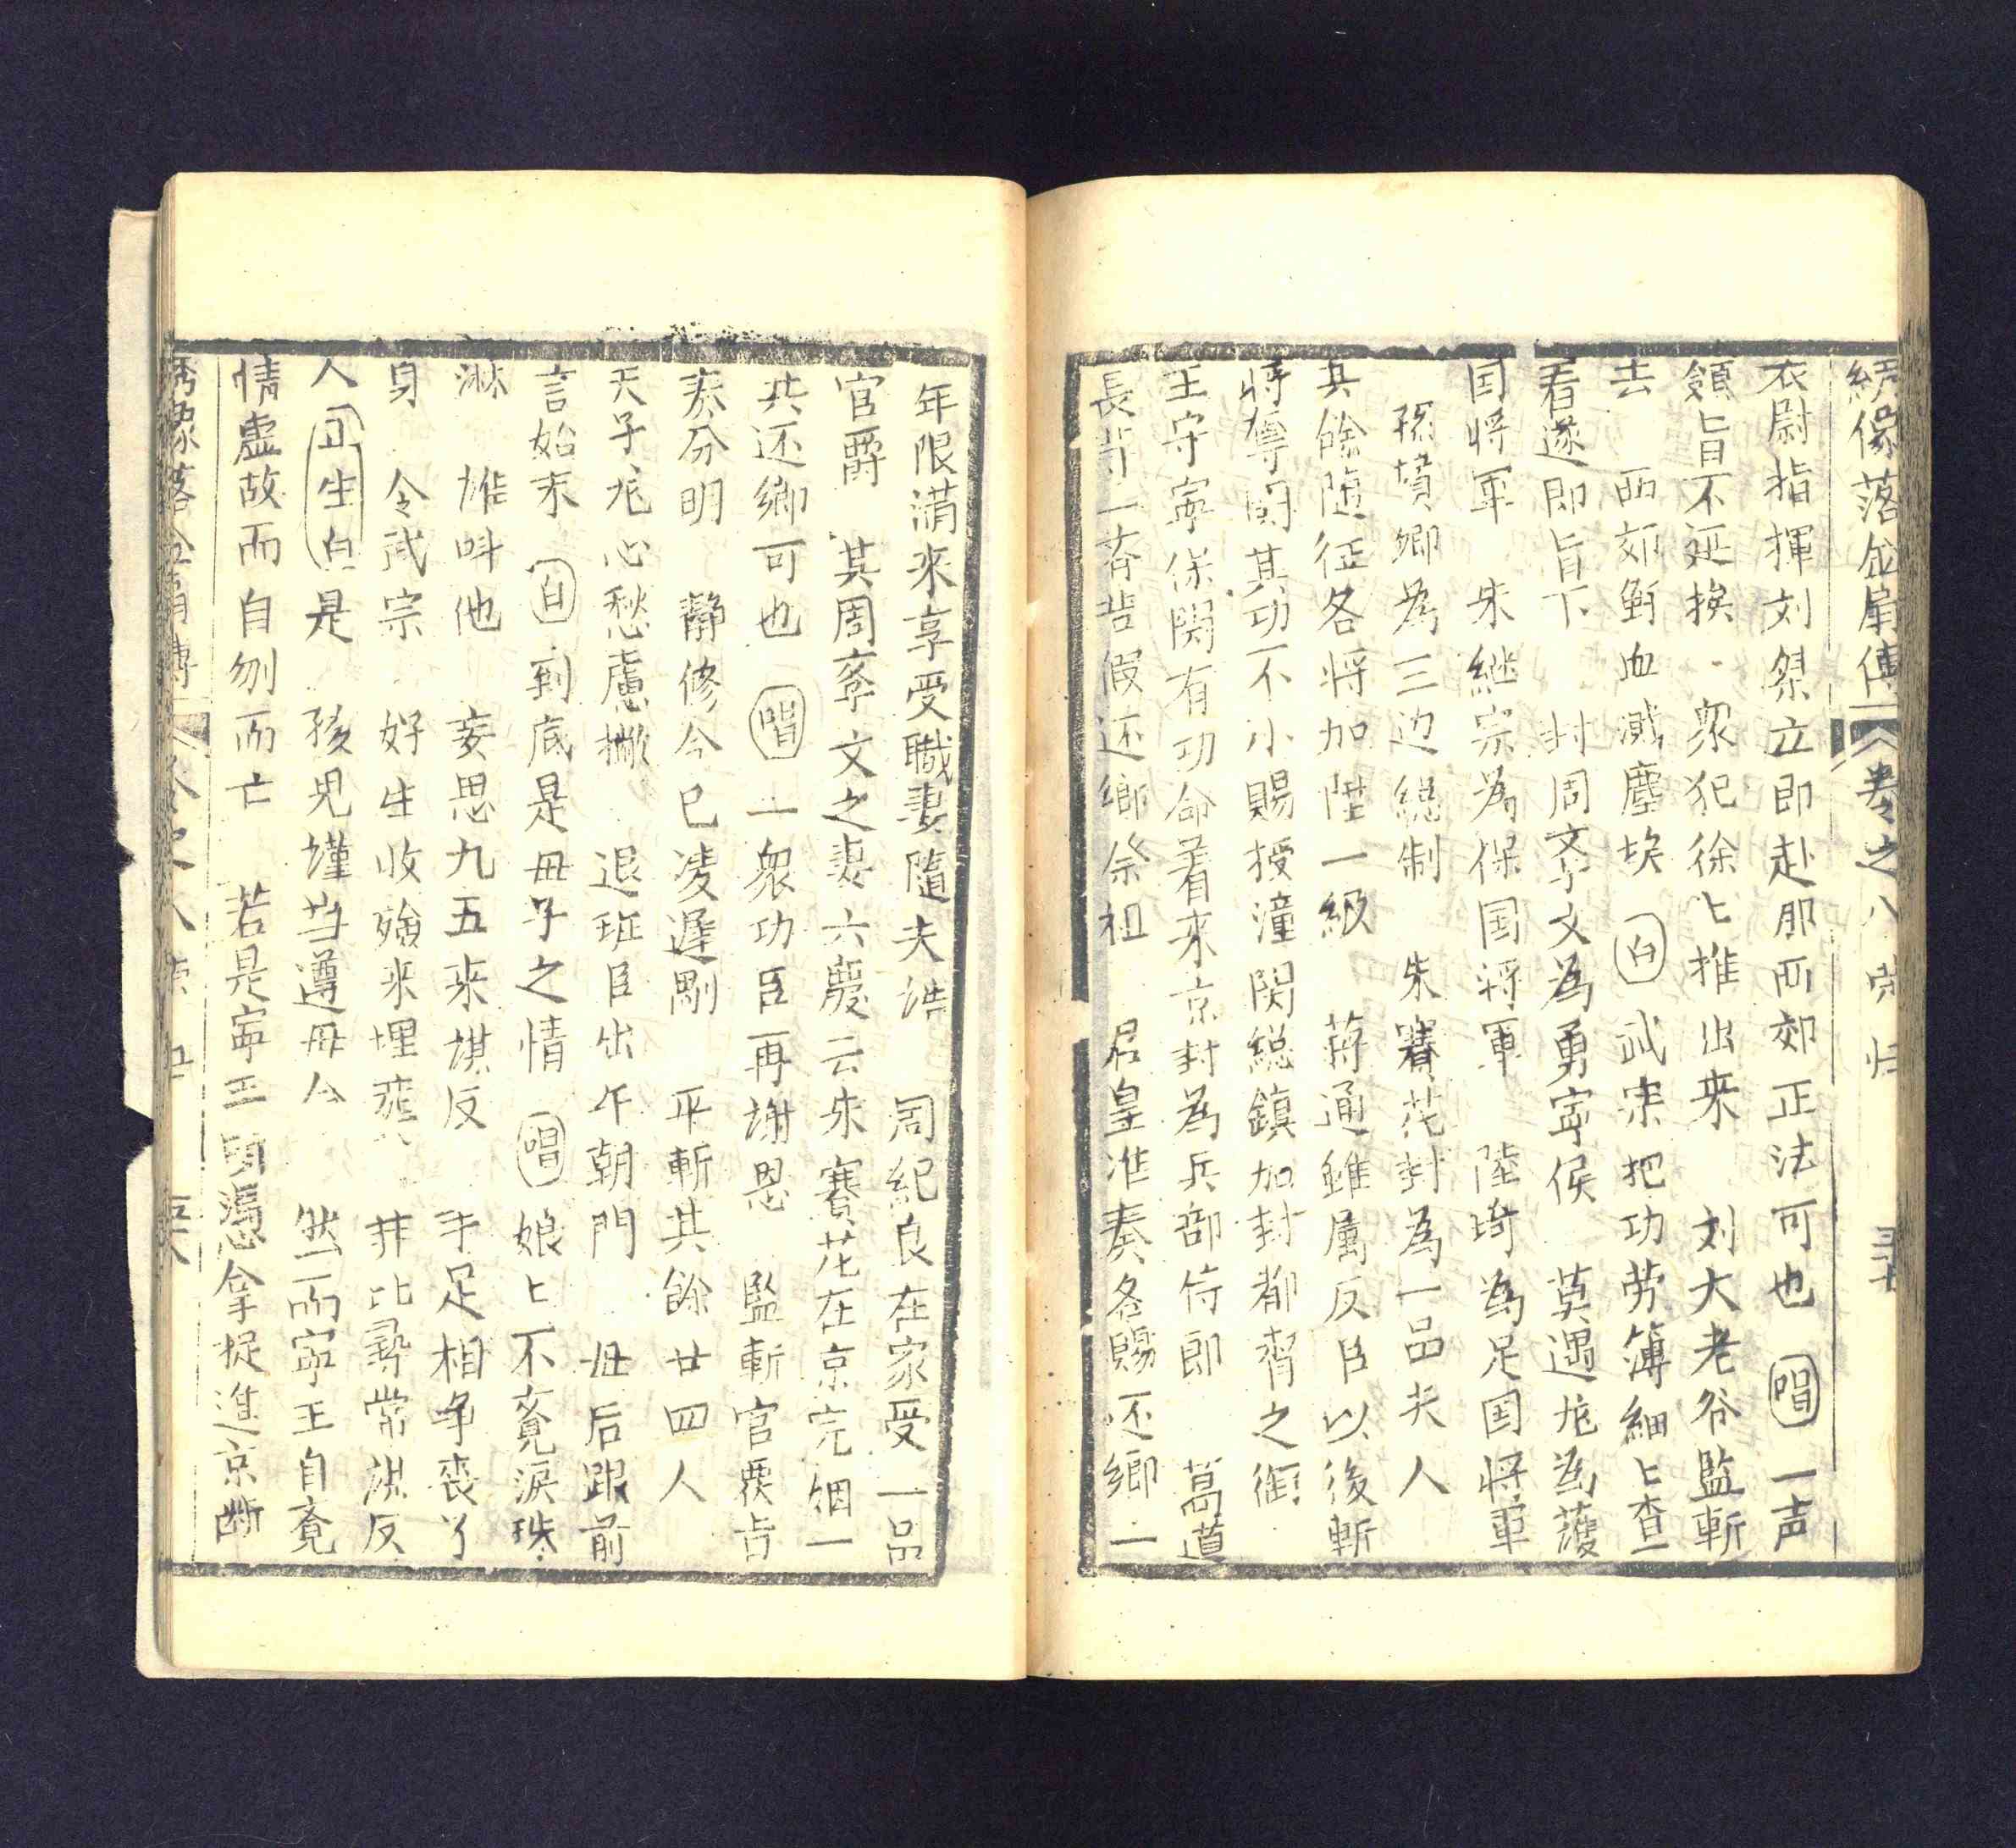 綉像落金扇傳 卷之八 荣归 三十
衣尉指揮刘傑立即赴那西郊正法可也 唱 一声
領旨不延挨 衆犯徐匕推出来 刘大老爷監斬
去 西郊鮮血濺塵埃 白 武宗把功劳簿細匕查
看遂即旨下 封周斈文為勇寧侯 莫遇龙為護
国将軍 朱継宗為保国将軍 陸琦為定国将軍
孫墳卿為三边総制 朱賽花封為一品夫人
其餘随征各将加陞一級 蒋通雖属反臣以後斬
将奪関其功不小賜授潼関総鎮加封都督之衔
王守寧保関有功命着来京封為兵部侍郎 萬道
長等一斉告假还鄉祭祖 君皇准奏各賜还鄉一
年限満來享受職妻隨夫誥 周紀良在家受一品
官爵 其周斈文之妻六慶云朱賽花在京完姻一
共还鄉可也 唱 一衆功臣再謝恩 監斬官覆旨
奏分明 静修今已凌遲剮 平斬其餘廿四人
天子龙心愁慮撇 退班臣出午朝門 母后跟前
言始末 白 到底是母子之情 唱 娘匕不覔淚珠
淋 惟叫他 妄思九五来謀反 手足相争丧了
身 令武宗 好生收殮来埋葬 非比尋常謀反
人 正生白 是 孩児謹当遵母命 然而寧王自覔
情虛故而自刎而亡 若是寧王 憑拿捉進京断
綉像落金扇傳 卷之八 荣归